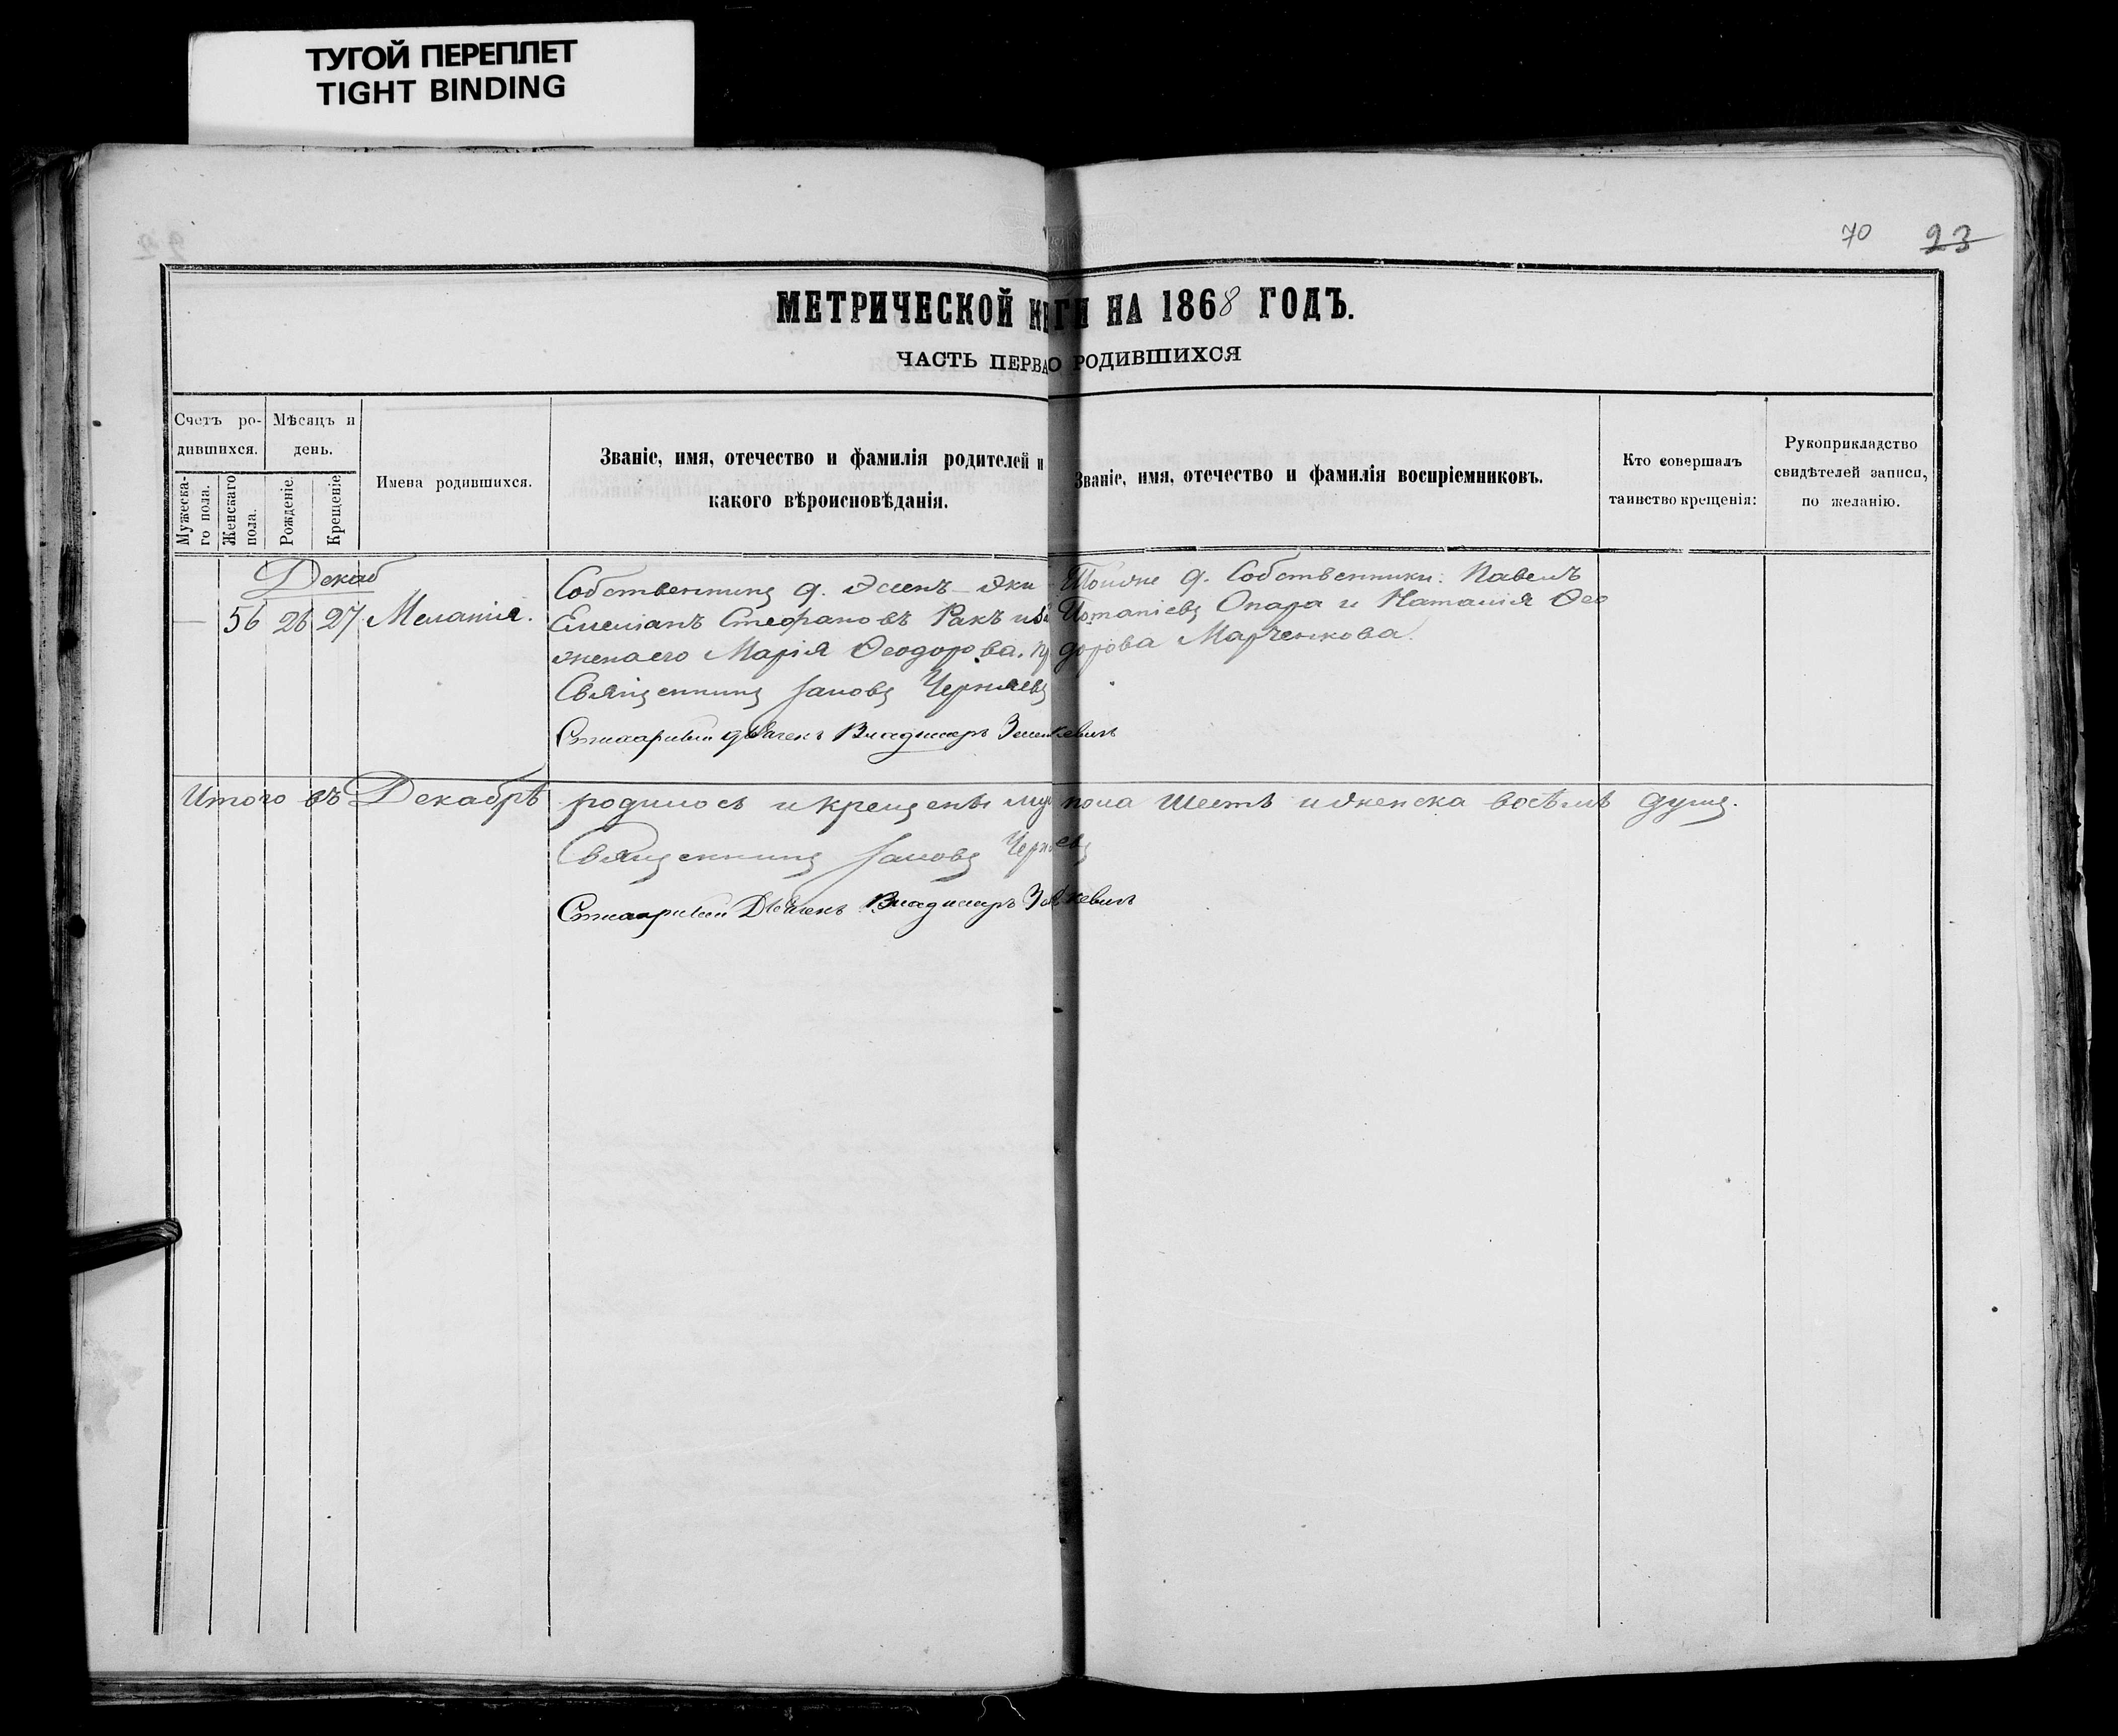 ТУГОЙ ПЕРЕПЛЕТ
TIGHT BINDING
70 23
МЕТРИЧЕСКОЙ КН ГИ НА 1868 ГОДЪ.
ЧАСТЬ ПЕРВА О РОДИВШИХСЯ
Счетъ ро-
дившихся.
Мужеска-
го пола.
Женскаго
пола.
Мѣсяцъ и
день.
Рожденіе.
Крещеніе
Имена родившихся.
Званіе, имя, отечество и фамилія родителей и
какого вѣроисповѣданія.
Званіе, имя, отечество и фамилія воспріемниковъ.
Кто совершалъ
таинство крещенія:
Рукоприкладство
свидѣтелей записи,
по желанію.
Декаб
— 56 26 27 Меланія.
Собственникъ д. Эсенъ-Эки
Емеліанъ Стефановъ Ракъ
жена его Марія Ѳеодорова.
Священникъ Іаковъ Черняевъ
Владимиръ
Тойже д. Собственники: Павелъ
Опара и Наталія Ѳео
дорова Марченкова.
Итого въ Декабрѣ родилось и крещены муж пола шесть и женска восѣмь душъ.
Священникъ Іаковъ Черн евъ
Владимиръ